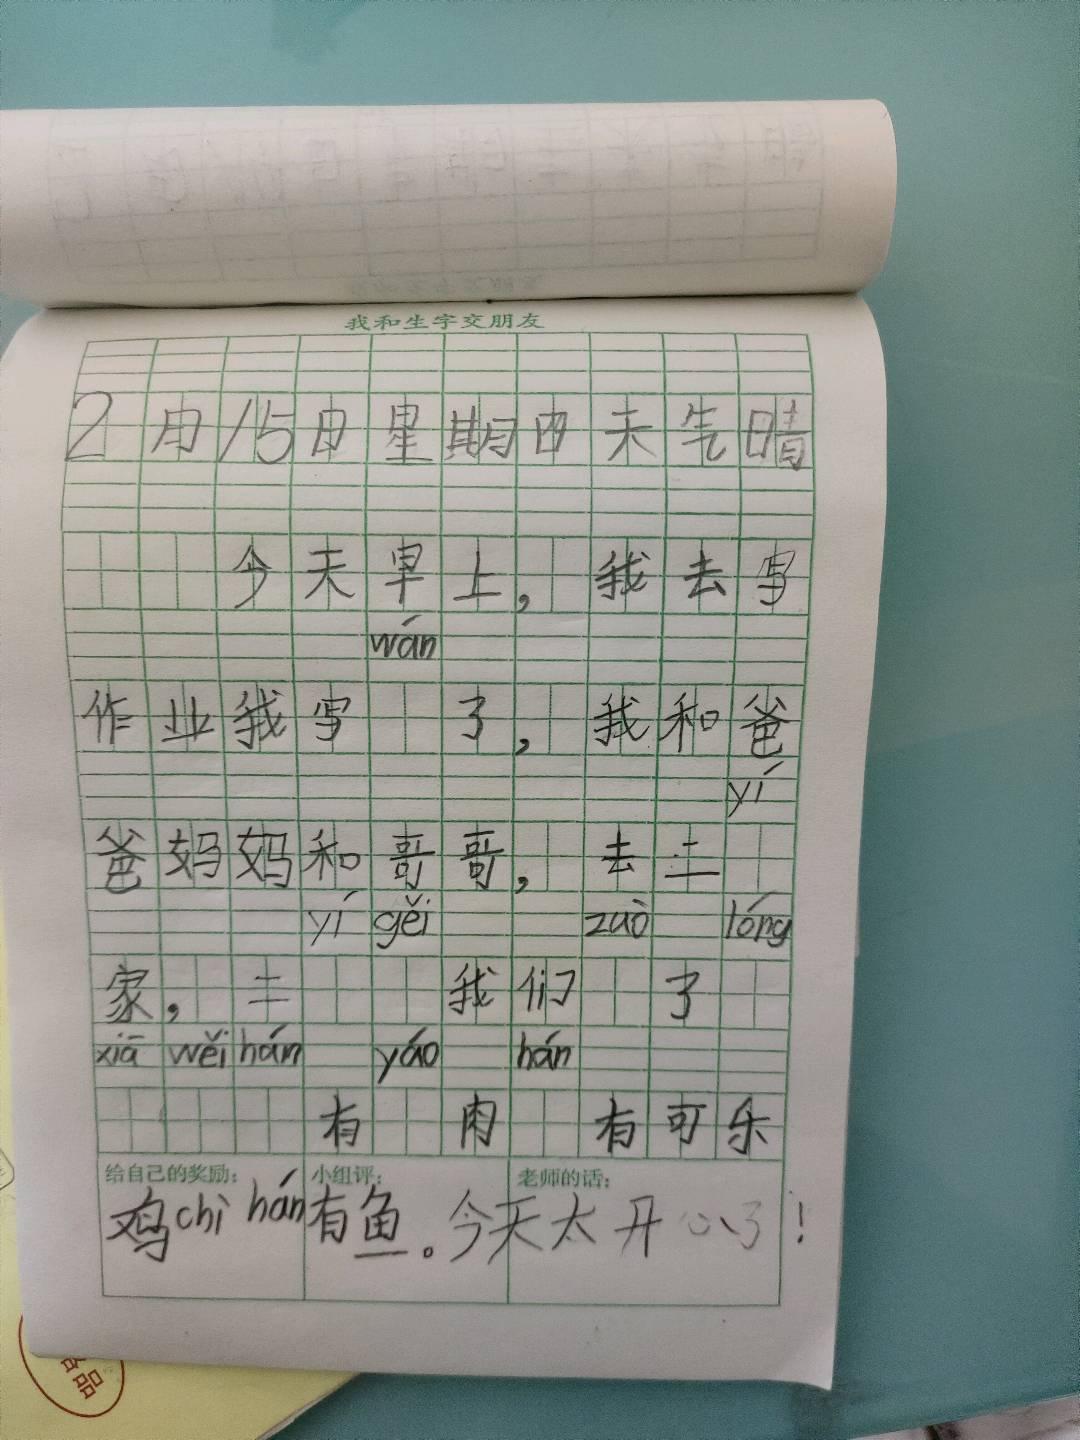 我和生字交朋友
2月15日星期四天气晴
今天早上，我去写
wán
作业我写了，我和爸
yí
爸妈妈和哥哥，去二
yí gěi zuò lóng
家，二我们了
xiā wěi hán yáo hán
有肉有可乐
给自己的奖励： 小组评： 老师的话：
鸡chì hán有鱼。今天太开心了！
品